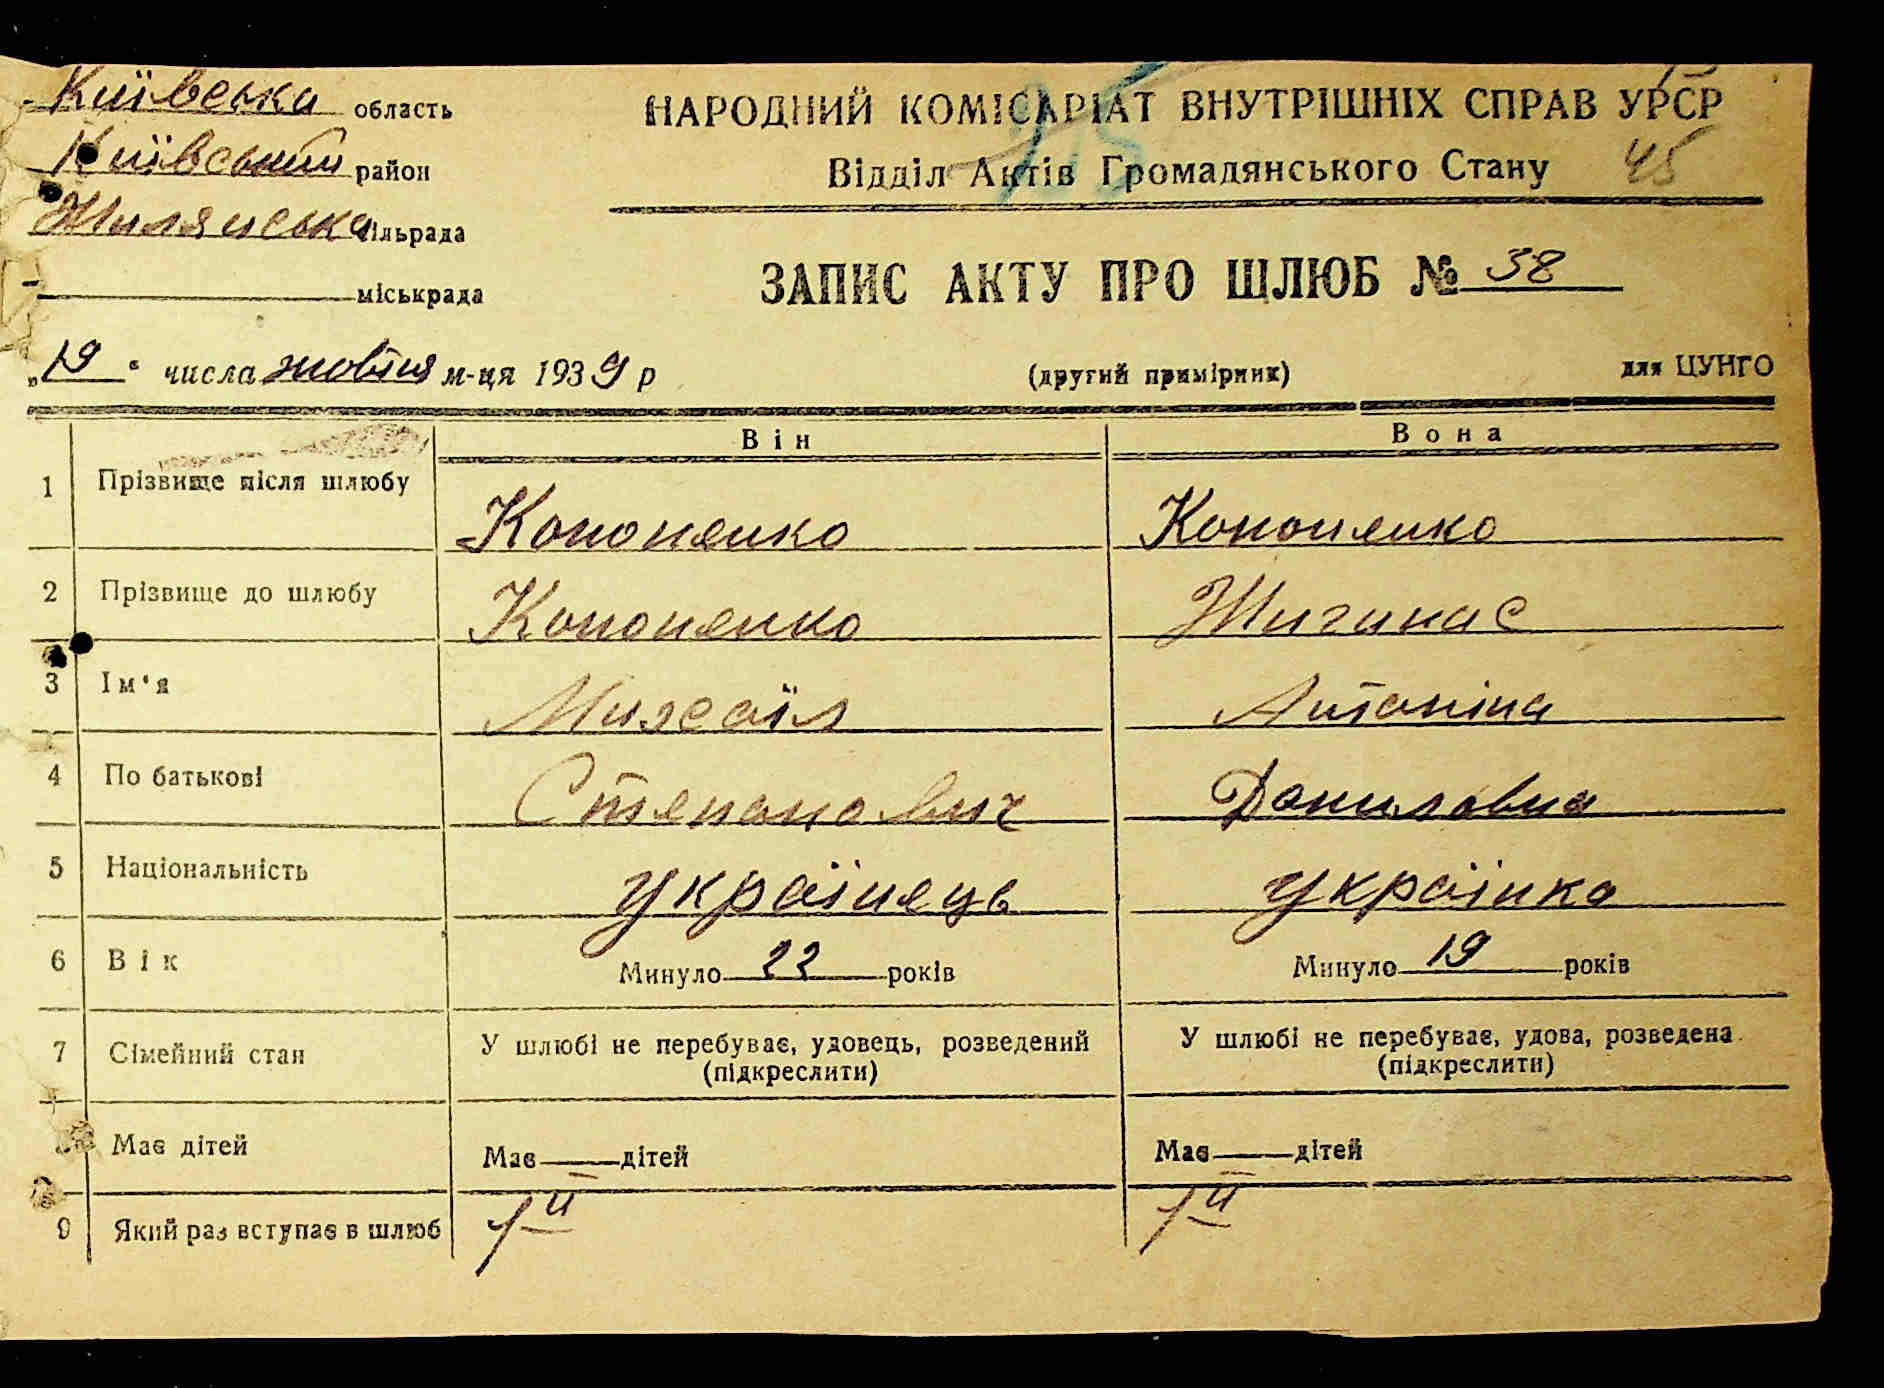 Київська область
Київський район
Жилянська сільрада
міськрада
НАРОДНИЙ КОМІСАРІАТ ВНУТРІШНІХ СПРАВ УРСР
Відділ Актів Громадянського Стану 45
ЗАПИС АКТУ ПРО ШЛЮБ № 38
„19" числа жовтня м-ця 1939 р (другий примірник) для ЦУНГО
Він Вона
1 Прізвище після шлюбу Кононенко Кононенко
2 Прізвище до шлюбу Кононенко Жигинас
3 Ім'я Михаїл Антоніна
4 По батькові Степанович Даниловна
5 Національність українець українка
6 Вік Минуло 22 років Минуло 19 років
7 Сімейний стан У шлюбі не перебуває, удовець, розведений У шлюбі не перебуває, удова, розведена
(підкреслити) (підкреслити)
Має дітей Має — дітей Має — дітей
9 Який раз вступає в шлюб 1й 1й